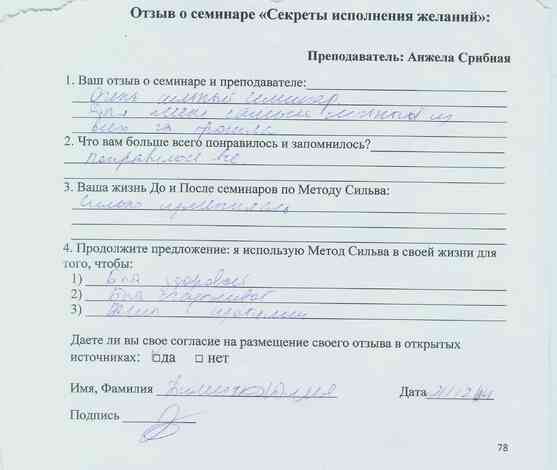 Отзыв о семинаре «Секреты исполнения желаний»:
Преподаватель: Анжела Срибная
1. Ваш отзыв о семинаре и преподавателе:
Очень сильный семинар.
Для меня самый сильный из
всех
2. Что вам больше всего понравилось и запомнилось?
понравилось все
3. Ваша жизнь До и После семинаров по Методу Сильва:
Сильно изменилась
4. Продолжите предложение: я использую Метод Сильва в своей жизни для
того, чтобы:
1) Быть здоровой
2) Быть счастливой
3)
Даете ли вы свое согласие на размещение своего отзыва в открытых
источниках: □да □ нет
Имя, Фамилия
Дата
Подпись
78